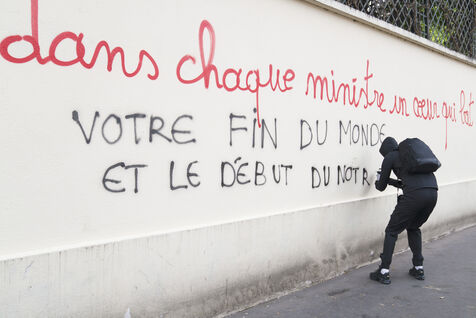 dans chaque ministre un coeur qui bat
VOTRE FIN DU MONDE
ET LE DÉBUT DU NOTR